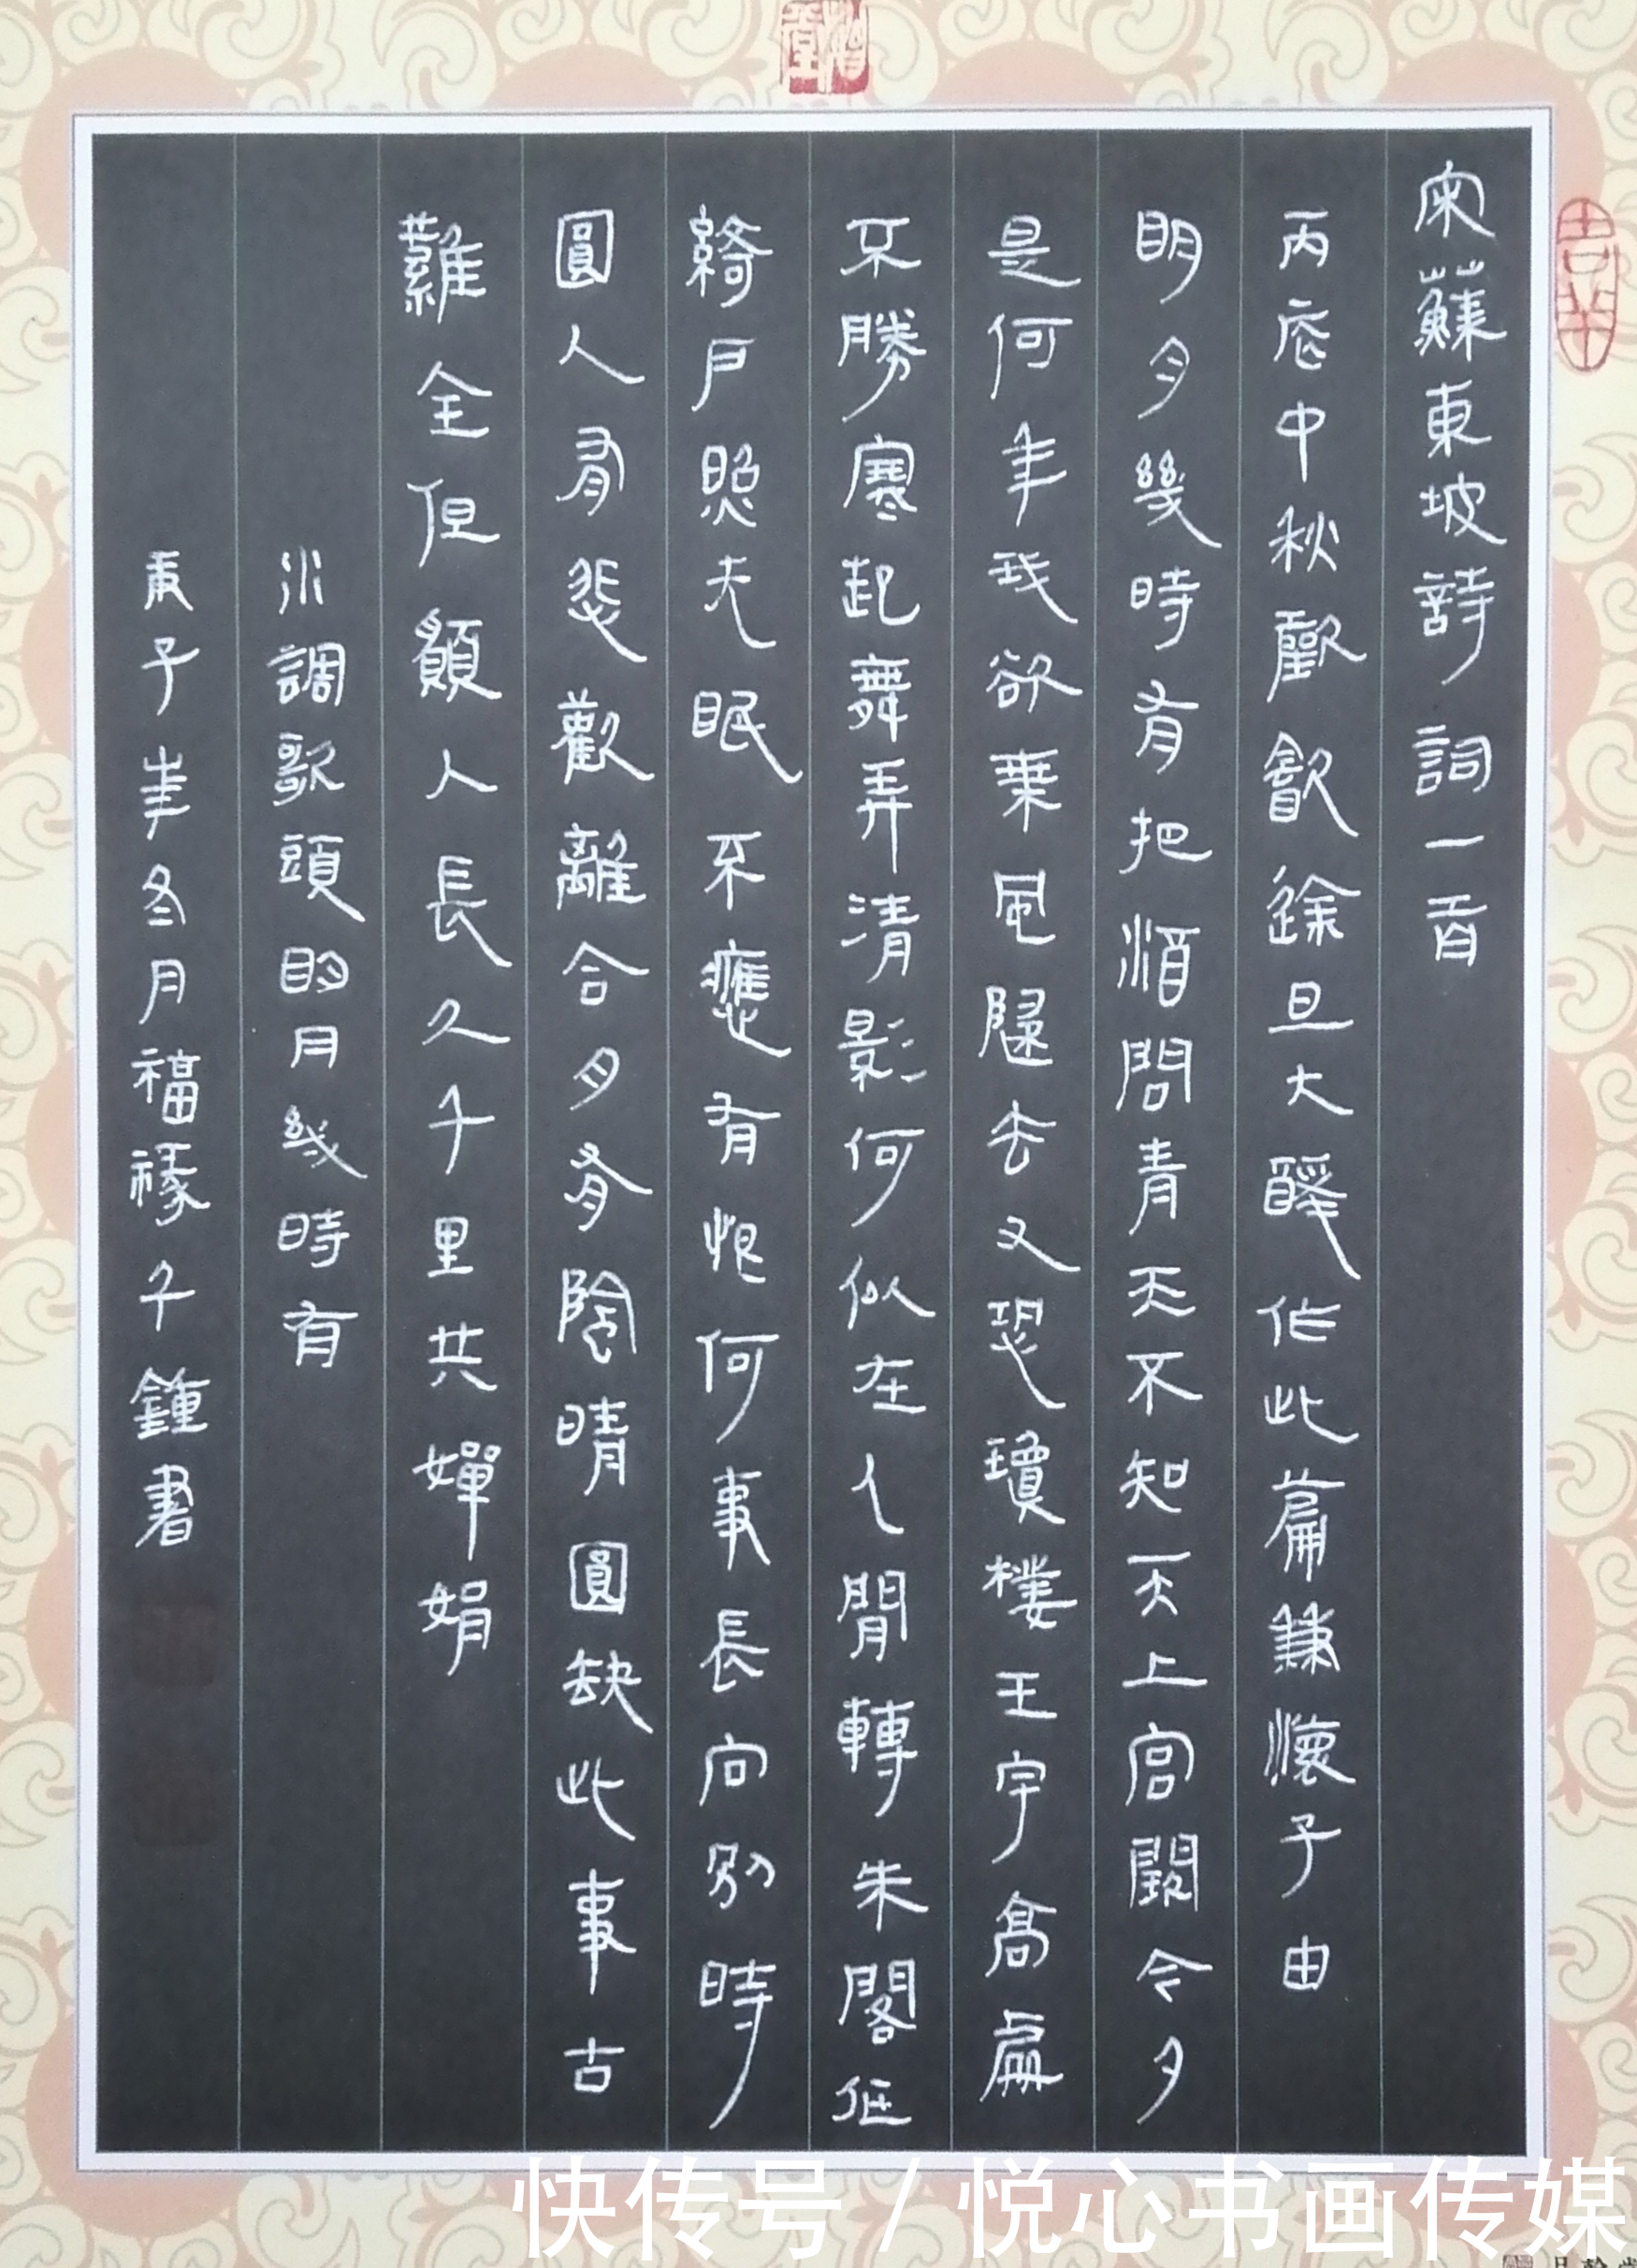 宋蘇東坡詩詞一首
丙辰中秋歡飲達旦大醉作此篇兼懷子由
明月幾時有把酒問青天不知天上宮闕今夕
是何年我欲乘風歸去又恐瓊樓玉宇高處
不勝寒起舞弄清影何似在人間轉朱閣低
綺戶照无眠不應有恨何事長向別時
圓人有悲歡離合月有陰晴圓缺此事古
難全但願人長久千里共嬋娟
水調歌頭明月幾時有
庚子年冬月福緣子鍾書
快传号/悦心书画传媒